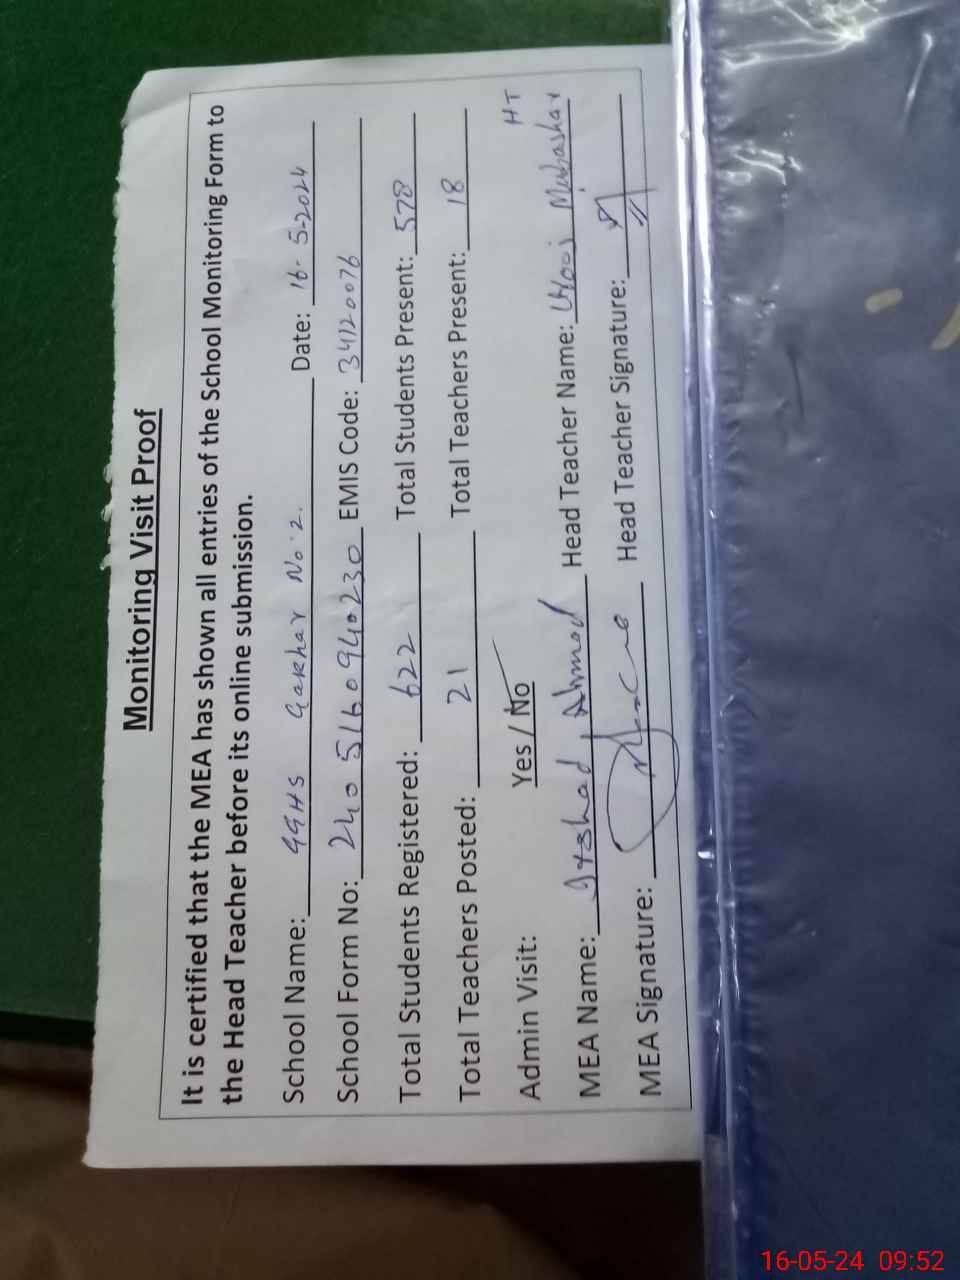 Monitoring Visit Proof
It is certified that the MEA has shown all entries of the School Monitoring Form to
the Head Teacher before its online submission.
School Name: GGHS Gakhar No.2. Date: 16-5-2024
School Form No: 2405160940230 EMIS Code: 34120076
Total Students Registered: 622 Total Students Present: 578
Total Teachers Posted: 21 Total Teachers Present: 18
Admin Visit: Yes / No HT
MEA Name: Irshad Ahmed Head Teacher Name: Mubashar
MEA Signature: Head Teacher Signature:
16-05-24 09:52